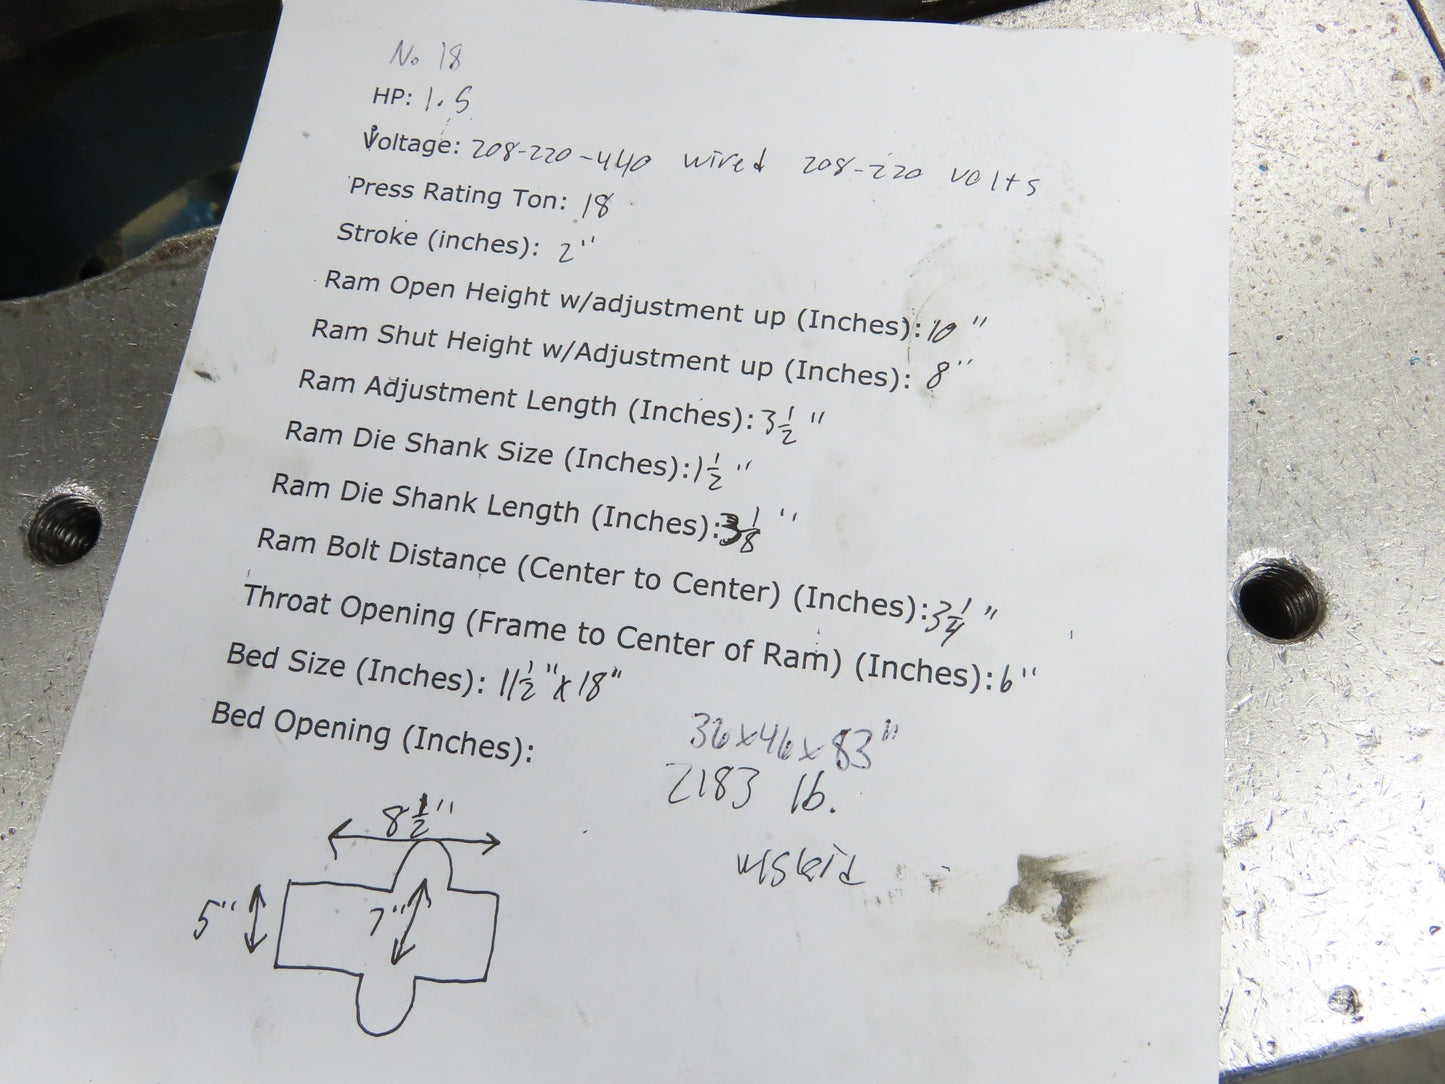 No 18
HP: 1.5
Voltage: 208-220-440 wired 208-220 volts
Press Rating Ton: 18
Stroke (inches): 2"
Ram Open Height w/adjustment up (Inches): 10"
Ram Shut Height w/Adjustment up (Inches): 8"
Ram Adjustment Length (Inches): 3 1/2"
Ram Die Shank Size (Inches): 1 1/2"
Ram Die Shank Length (Inches): 3 1/8"
Ram Bolt Distance (Center to Center) (Inches): 3 1/4"
Throat Opening (Frame to Center of Ram) (Inches): 6"
Bed Size (Inches): 11 1/2" x 18"
Bed Opening (Inches):
36x46x83"
2183 lb.
w/skid
8 1/2"
5"
7"